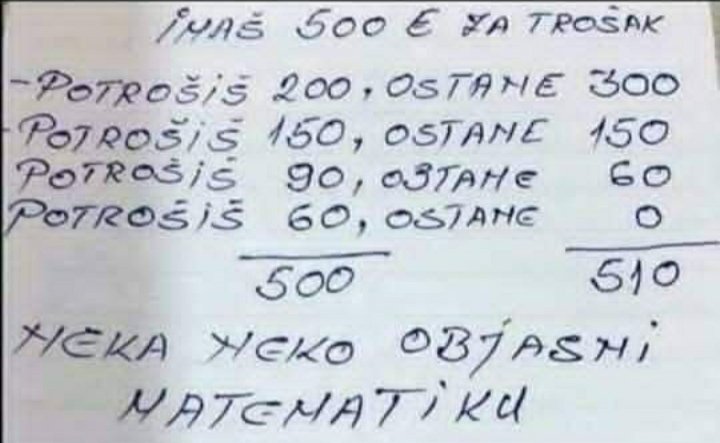 IMAŠ 500 € ZA TROŠAK
- POTROŠIŠ 200, OSTANE 300
- POTROŠIŠ 150, OSTANE 150
POTROŠIŠ 90, OSTANE 60
POTROŠIŠ 60, OSTANE 0
500 510
NEKA NEKO OBJASNI
MATEMATIKU